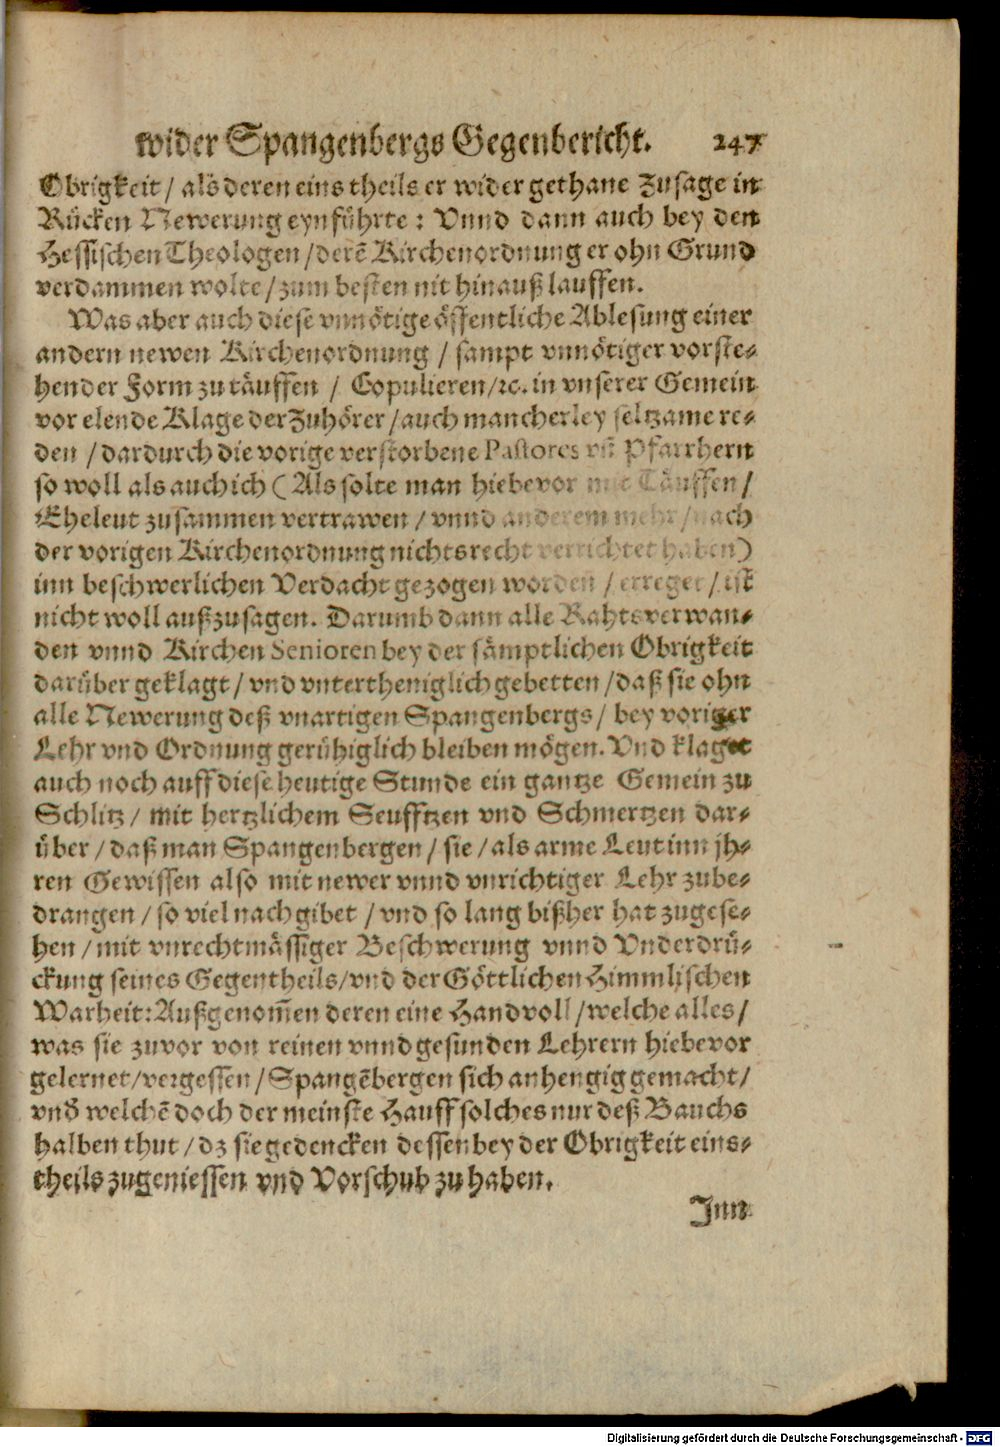 wider Spangenbergs Gegenbericht. 247
Obrigkeit / als deren eins theils er wider gethane Zusage in
Rücken Newerung eynführte: Vnnd dann auch bey den
Hessischen Theologen / derẽ Kirchenordnung er ohn Grund
verdammen wolte / zum besten nit hinauß lauffen.
Was aber auch diese vnnötige öffentliche Ablesung einer
andern newen Kirchenordnung / sampt vnnötiger vorste-
hender Form zu täuffen / Copulieren /ꝛc. in vnserer Gemein
vor elende Klage der Zuhörer / auch mancherley seltzame re-
den / dardurch die vorige verstorbene Pastores vñ Pfarrhern
so woll als auch ich (Als solte man hiebevor mit Täuffen /
Eheleut zusammen vertrawen / vnnd anderem mehr / nach
der vorigen Kirchenordnung nichts recht verrichtet haben)
inn beschwerlichen Verdacht gezogen worden / erreget / ist
nicht woll außzusagen. Darumb dann alle Rahtsverwan-
den vnnd Kirchen Senioren bey der sämptlichen Obrigkeit
darüber geklagt / vnd vntertheniglich gebetten / daß sie ohn
alle Newerung deß vnartigen Spangenbergs / bey voriger
Lehr vnd Ordnung gerühiglich bleiben mögen. Vnd klaget
auch noch auff diese heutige Stunde ein gantze Gemein zu
Schlitz / mit hertzlichem Seufftzen vnd Schmertzen dar-
über / daß man Spangenbergen / sie / als arme Leut inn jh-
ren Gewissen also mit newer vnnd vnrichtiger Lehr zube-
drangen / so viel nach gibet / vnd so lang bißher hat zugese-
hen / mit vnrechtmässiger Beschwerung vnnd Vnderdrü-
ckung seines Gegentheils / vnd der Göttlichen Himmlischen
Warheit: Außgenom̃en deren eine Handvoll / welche alles /
was sie zuvor von reinen vnnd gesunden Lehrern hiebevor
gelernet / vergessen / Spangẽbergen sich anhengig gemacht /
vnd welchẽ doch der meinste Hauff solches nur deß Bauchs
halben thut / dz sie gedencken dessen bey der Obrigkeit eins-
theils zugeniessen vnd Vorschub zu haben.
Inn
Digitalisierung gefördert durch die Deutsche Forschungsgemeinschaft - DFG